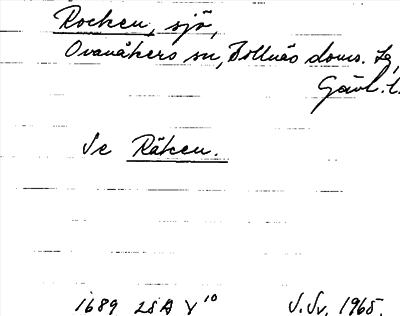 Rocken, sjö,
Ovanåkers sn, Bollnäs doms. lg,
Gävl. l.
Se Råken.
1689 LSA Y¹⁰ J.Sv. 1965.